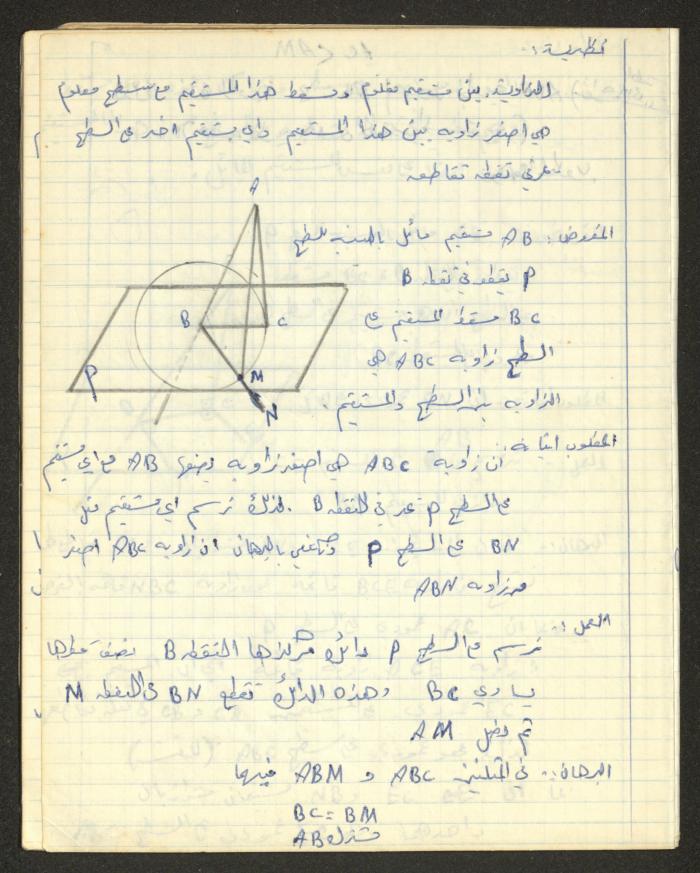 نظرية:
الزاوية بين مستقيم معلوم ومسقط هذا المستقيم مع سطح معلوم
هي اصغر زاويه بين هذا المستقيم واي مستقيم اخر في السطح
يمر في نقطه تقاطعه
A
المفروض: AB مستقيم مائل بالنسبه للسطح
P يقطعه في نقطه B
BC مسقط المستقيم على
السطح زاويه ABC هي
الزاويه بين السطح والمستقيم.
B C M N P
المطلوب اثباته: ان زاوية ABC هي اصغر زاويه يصنعها AB مع اي مستقيم
على السطح P يمر في النقطه B. لذلك نرسم اي مستقيم مثل
BN على السطح P ونعني بالبرهان ان زاويه ABC اصغر
من زاويه ABN
العمل: نرسم على السطح P دائرة مركزها النقطه B نصف قطرها
يساوي BC وهذه الدائرة تقطع BN في النقطه M
ثم نصل AM
البرهان: في المثلثين ABC و ABM فيهما
BC = BM
AB مشترك